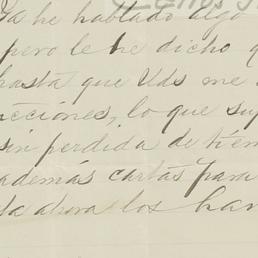 he hablado algo
pero le he dicho q
hasta que Uds me
cciones, lo que su
sin perdida de tiem
además cartas para
ta ahora los han